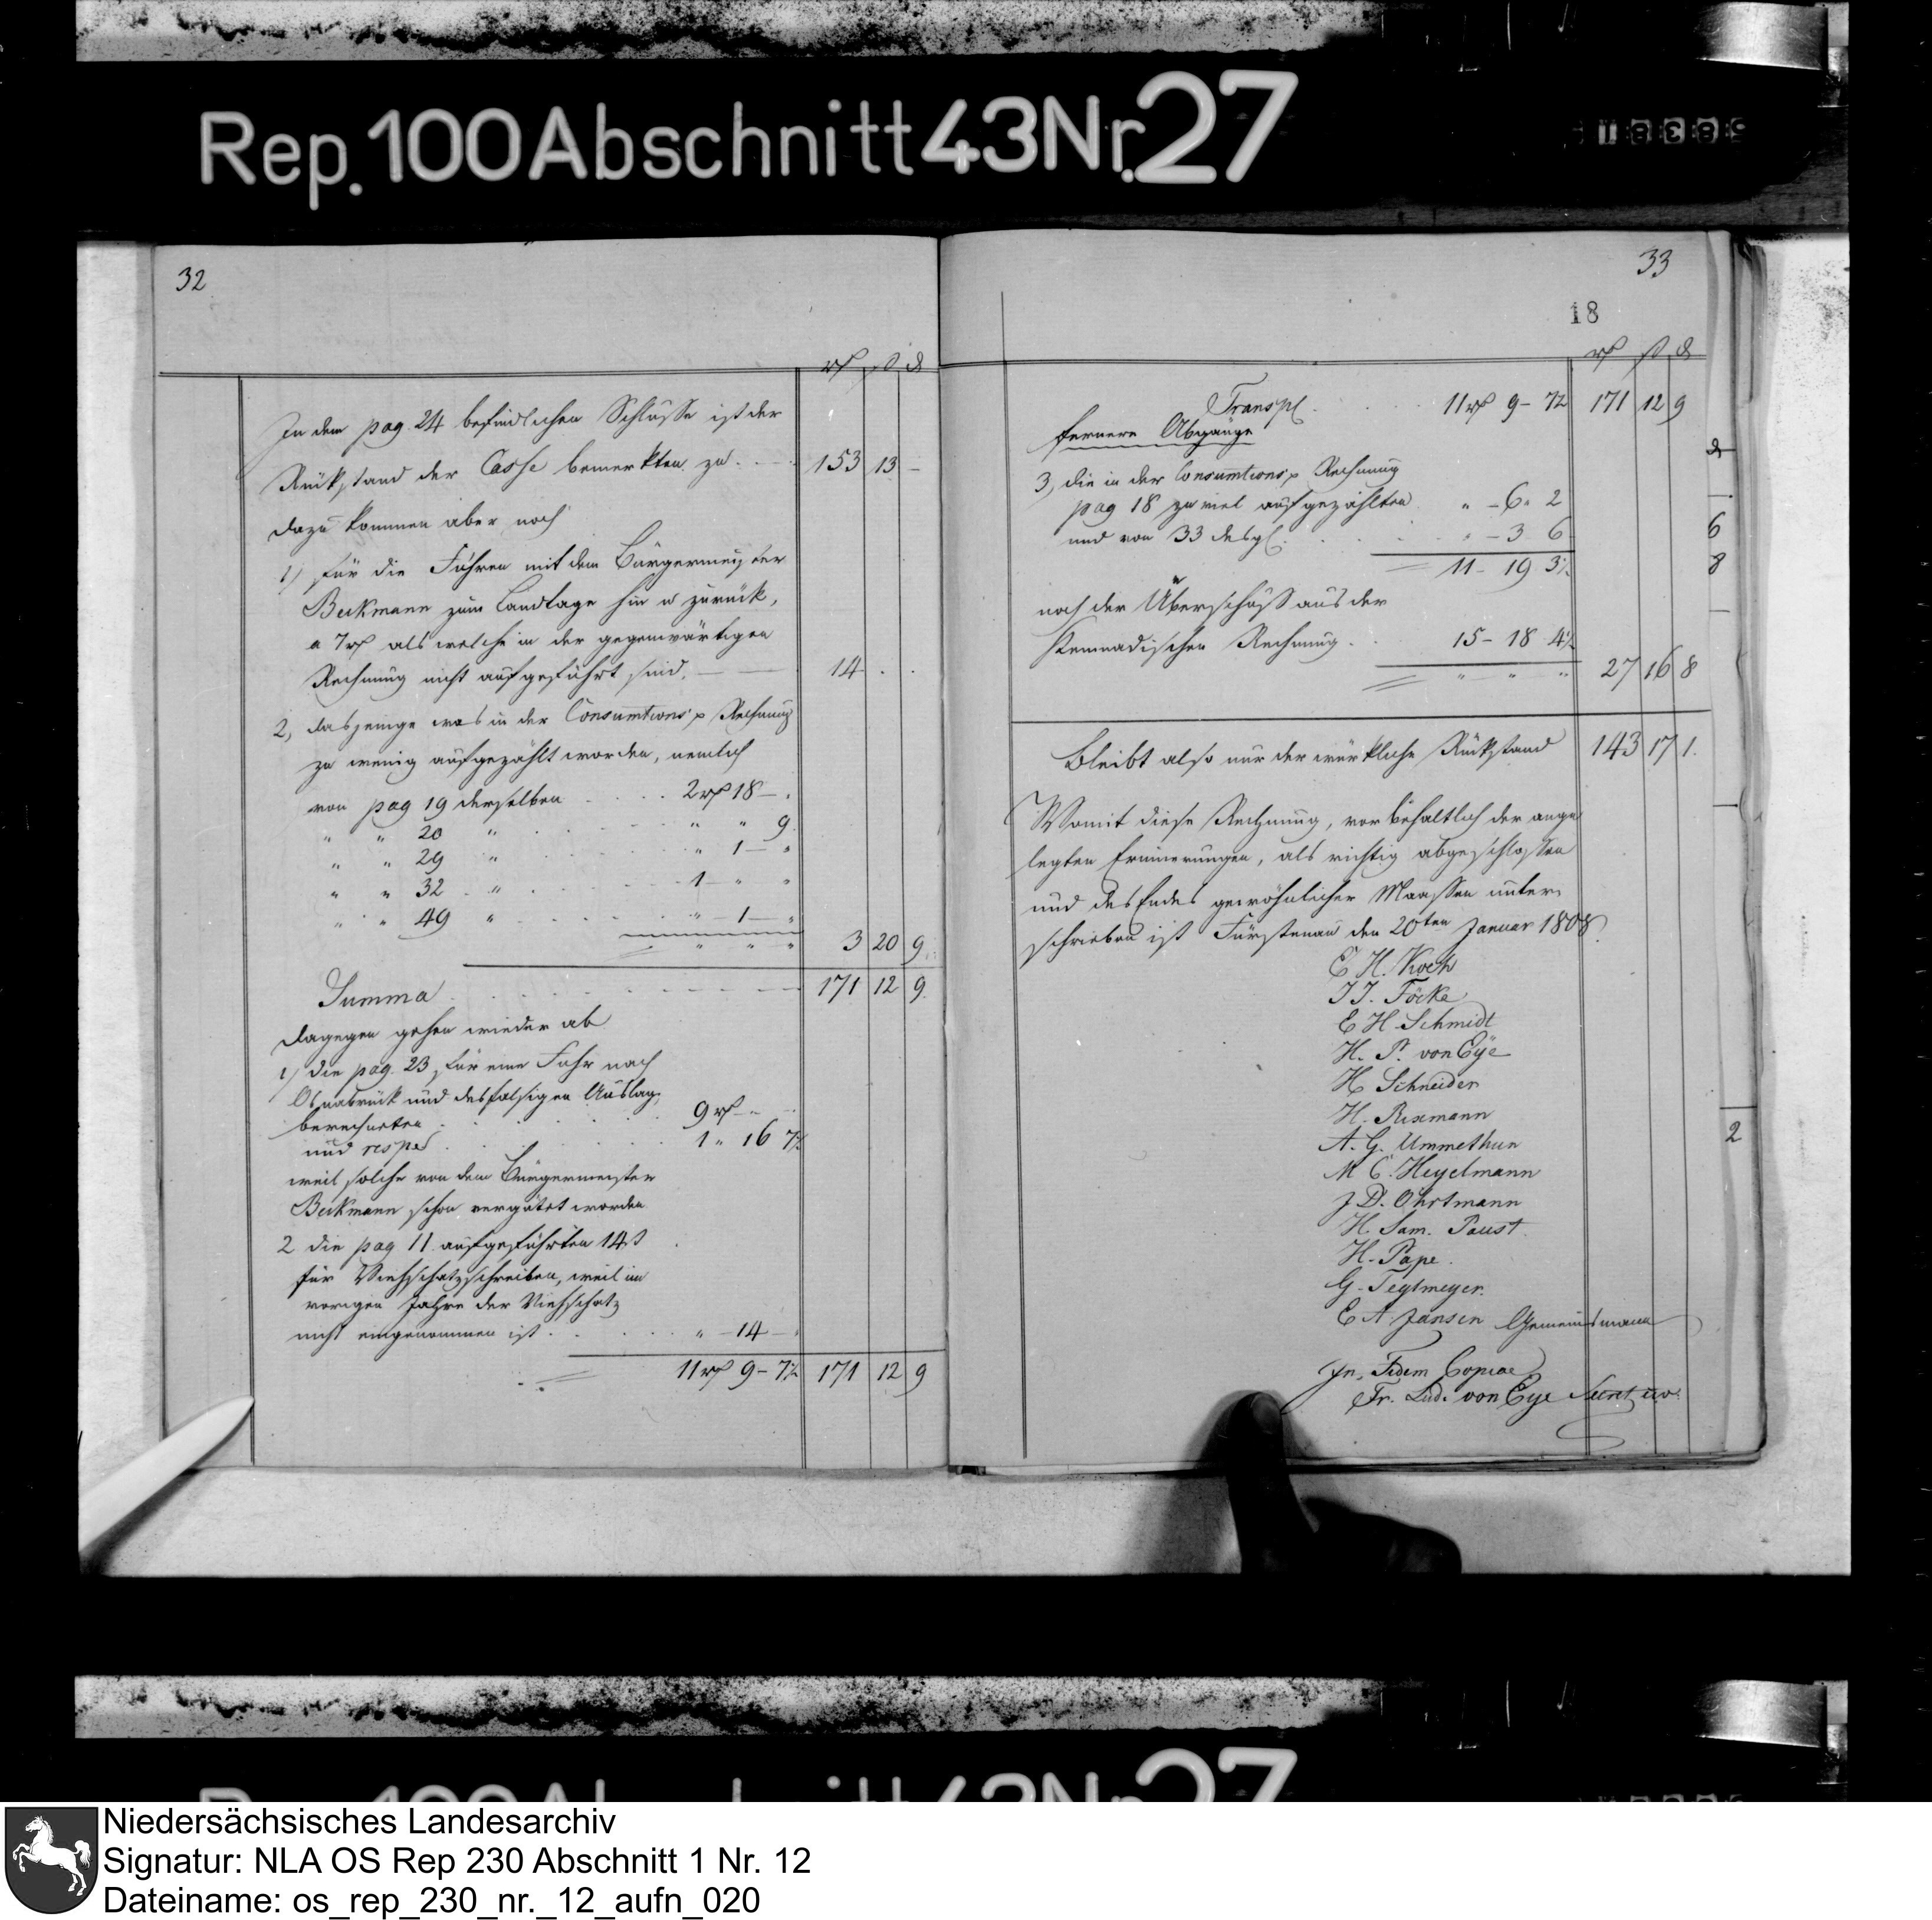 Rep. 100 Abschnitt 43 Nr. 27
32
rth ß d
In dem pag. 24 befindlichen Schlusse ist der
Rükstand der Casse bemerkten zu 153 13 –
dazu kommen aber noch
1) für die Fuhren mit dem Bürgermeister
Beckmann zum Landtage hin u zurük,
a 7 rth als welche in der gegenwärtigen
Rechnung nicht aufgeführt sind. 14 . .
2, dasjenige was in der Consumtions Rechnung
zu wenig aufgezählt worden, nemlich
von pag 19 derselben . . . . 2 rth 18 – .
" " 20 " " " 9.
" " 29 " " 1 – "
" " 32 " 1 – " "
" " 49 " " – 1 – "
" " " 3 20 9
Summa 171 12 9.
dagegen gehen wieder ab
1) die pag. 23, für eine Fuhr nach
Osnabrück und desfalsigen Auslag.
berechneten 9 rth – "
und resp. 1 " 16 7½
weil solche von dem Bürgermeister
Beckmann schon vergütet worden
2 die pag 11. aufgeführten 14 ß
für Viehschatzschreiben, weil im
vorigen Jahre der Viehschatz
nicht eingenommen ist . . . . " – 14 –
11 rth 9 – 7½ 171 12 9
33
18
rth ß d
Transp. 11 rth 9 – 7½ 171 12 9
fernere Abgänge
3, die in der Consumtions Rechnung
pag 18 zu viel aufgezählten " – 6 " 2
und von 33 desgl. " – 3 6
11 – 19 3½
noch der Überschuß aus der
Rechnung . . 15 – 18 4½
" " " 27 16 8
Bleibt also nur der würkliche Rükstand 143 17 1.
Womit diese Rechnung, vorbehaltlich der ange
legten Erinnerungen, als richtig abgeschlossen
und des Endes gewöhnlicher Maassen unter
schrieben ist Fürstenau den 20ten Januar 1808.
E H. Koch
J J. Föcke
E H. Schmidt
H. P. von Eye
H Schneider
H. Risemann
A. G. Ummethun
M C. Heyelmann
J D. Ohrtmann
H. Sam. Paust.
H. Pape.
G. Teglmeyer.
E A Jansen Gemeinsmann
In Fidem Copiae
Fr. Lud. von Eye Secret
d
6
8
2
Niedersächsisches Landesarchiv
Signatur: NLA OS Rep 230 Abschnitt 1 Nr. 12
Dateiname: os_rep_230_nr._12_aufn_020